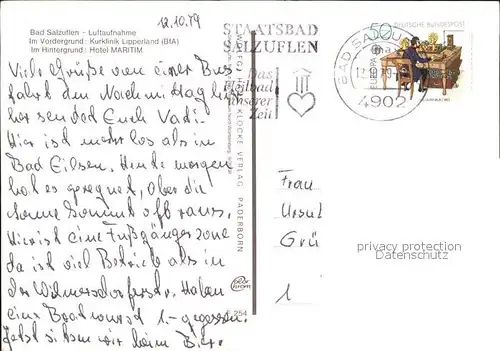 12.10.79
Bad Salzuflen - Luftaufnahme
Im Vordergrund: Kurklinik Lipperland (BfA)
Im Hintergrund: Hotel MARITIM
STAATSBAD
SALZUFLEN
Das
Heilbad
unserer
Zeit
BAD SALZU
4902
50
DEUTSCHE BUNDESPOST
EUROPA
Viele Grüße von einer Bus-
fahrt den Nachmittag hier
her sendet Euch Vati.
Hier ist mehr los als in
Bad Eilsen. Heute morgen
hat es geregnet, aber die
Sonne kommt oft raus.
Hier ist eine Fußgängerzone
da ist viel Betrieb als in
der Wilmersdorferstr. Haben
eine Bockwurst 1.- gegessen.
Jetzt sitzen wir beim Bier.
KLOCKE VERLAG PADERBORN
E 254
Frau
Ursul
Grü
1
privacy protection
Datenschutz